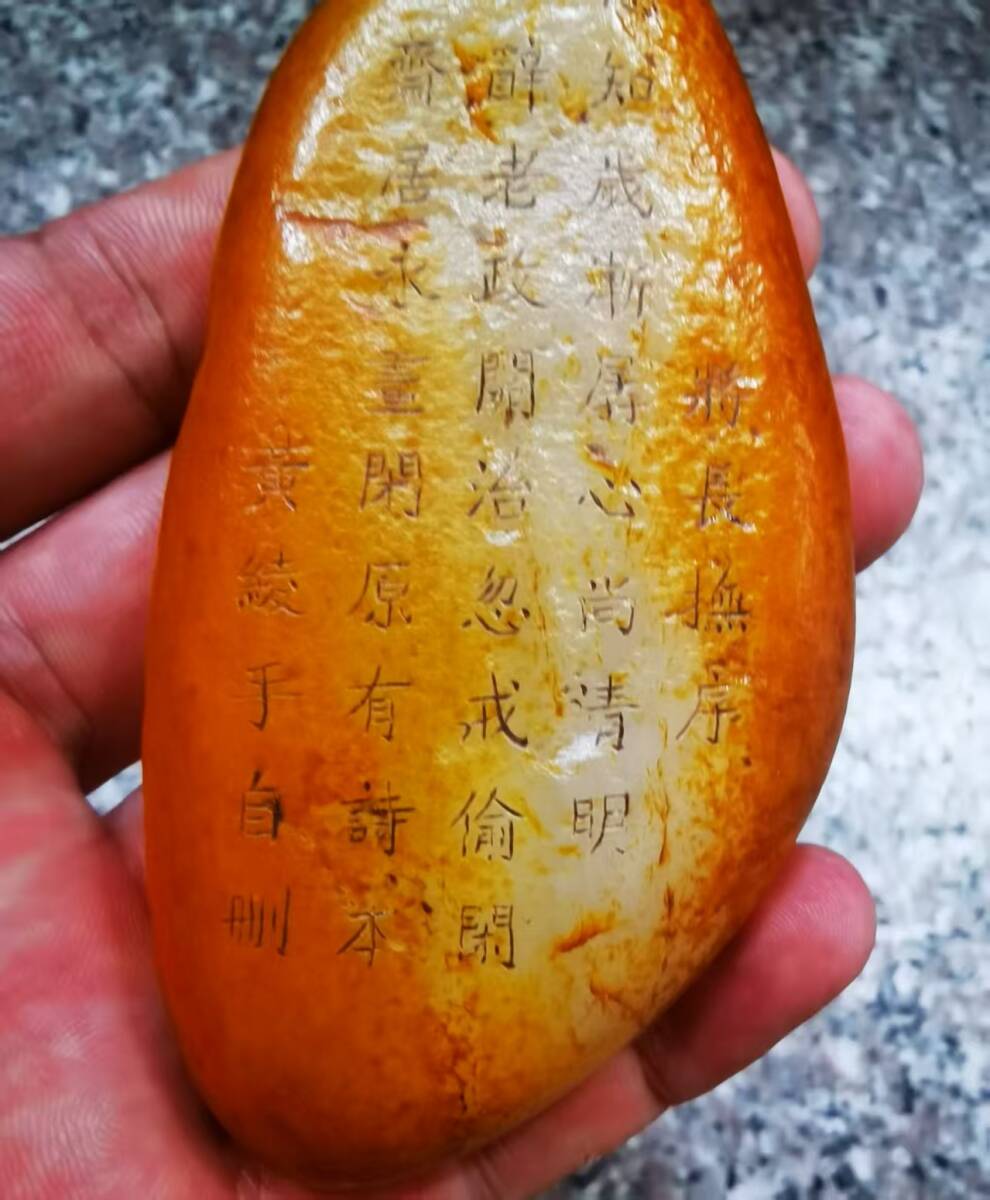 將長撫
知歲漸孱心尚清明
辭老政關治忽戒偷閑
齋居永晝閑原有詩本
黃綾手自刪